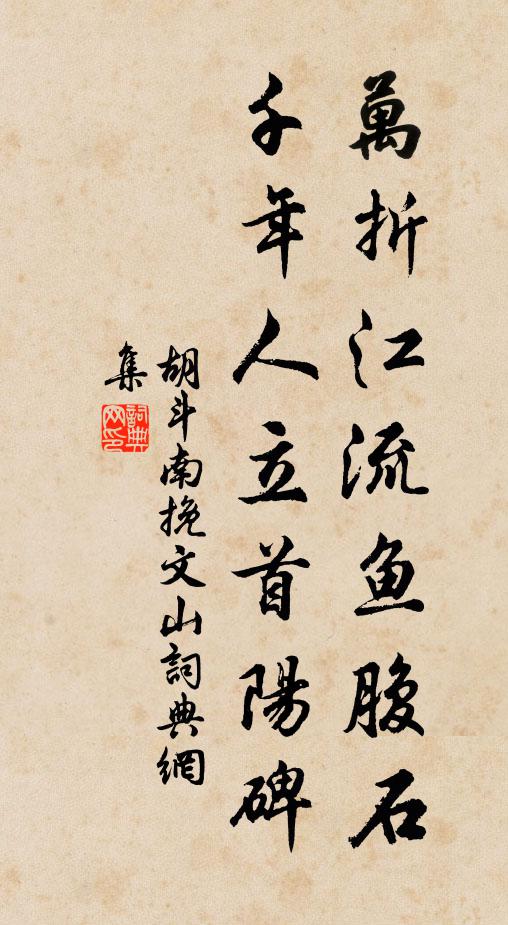 萬折江流鱼腹石
千年人立首陽碑
胡斗南挽文山詞典網
集
詞典网印